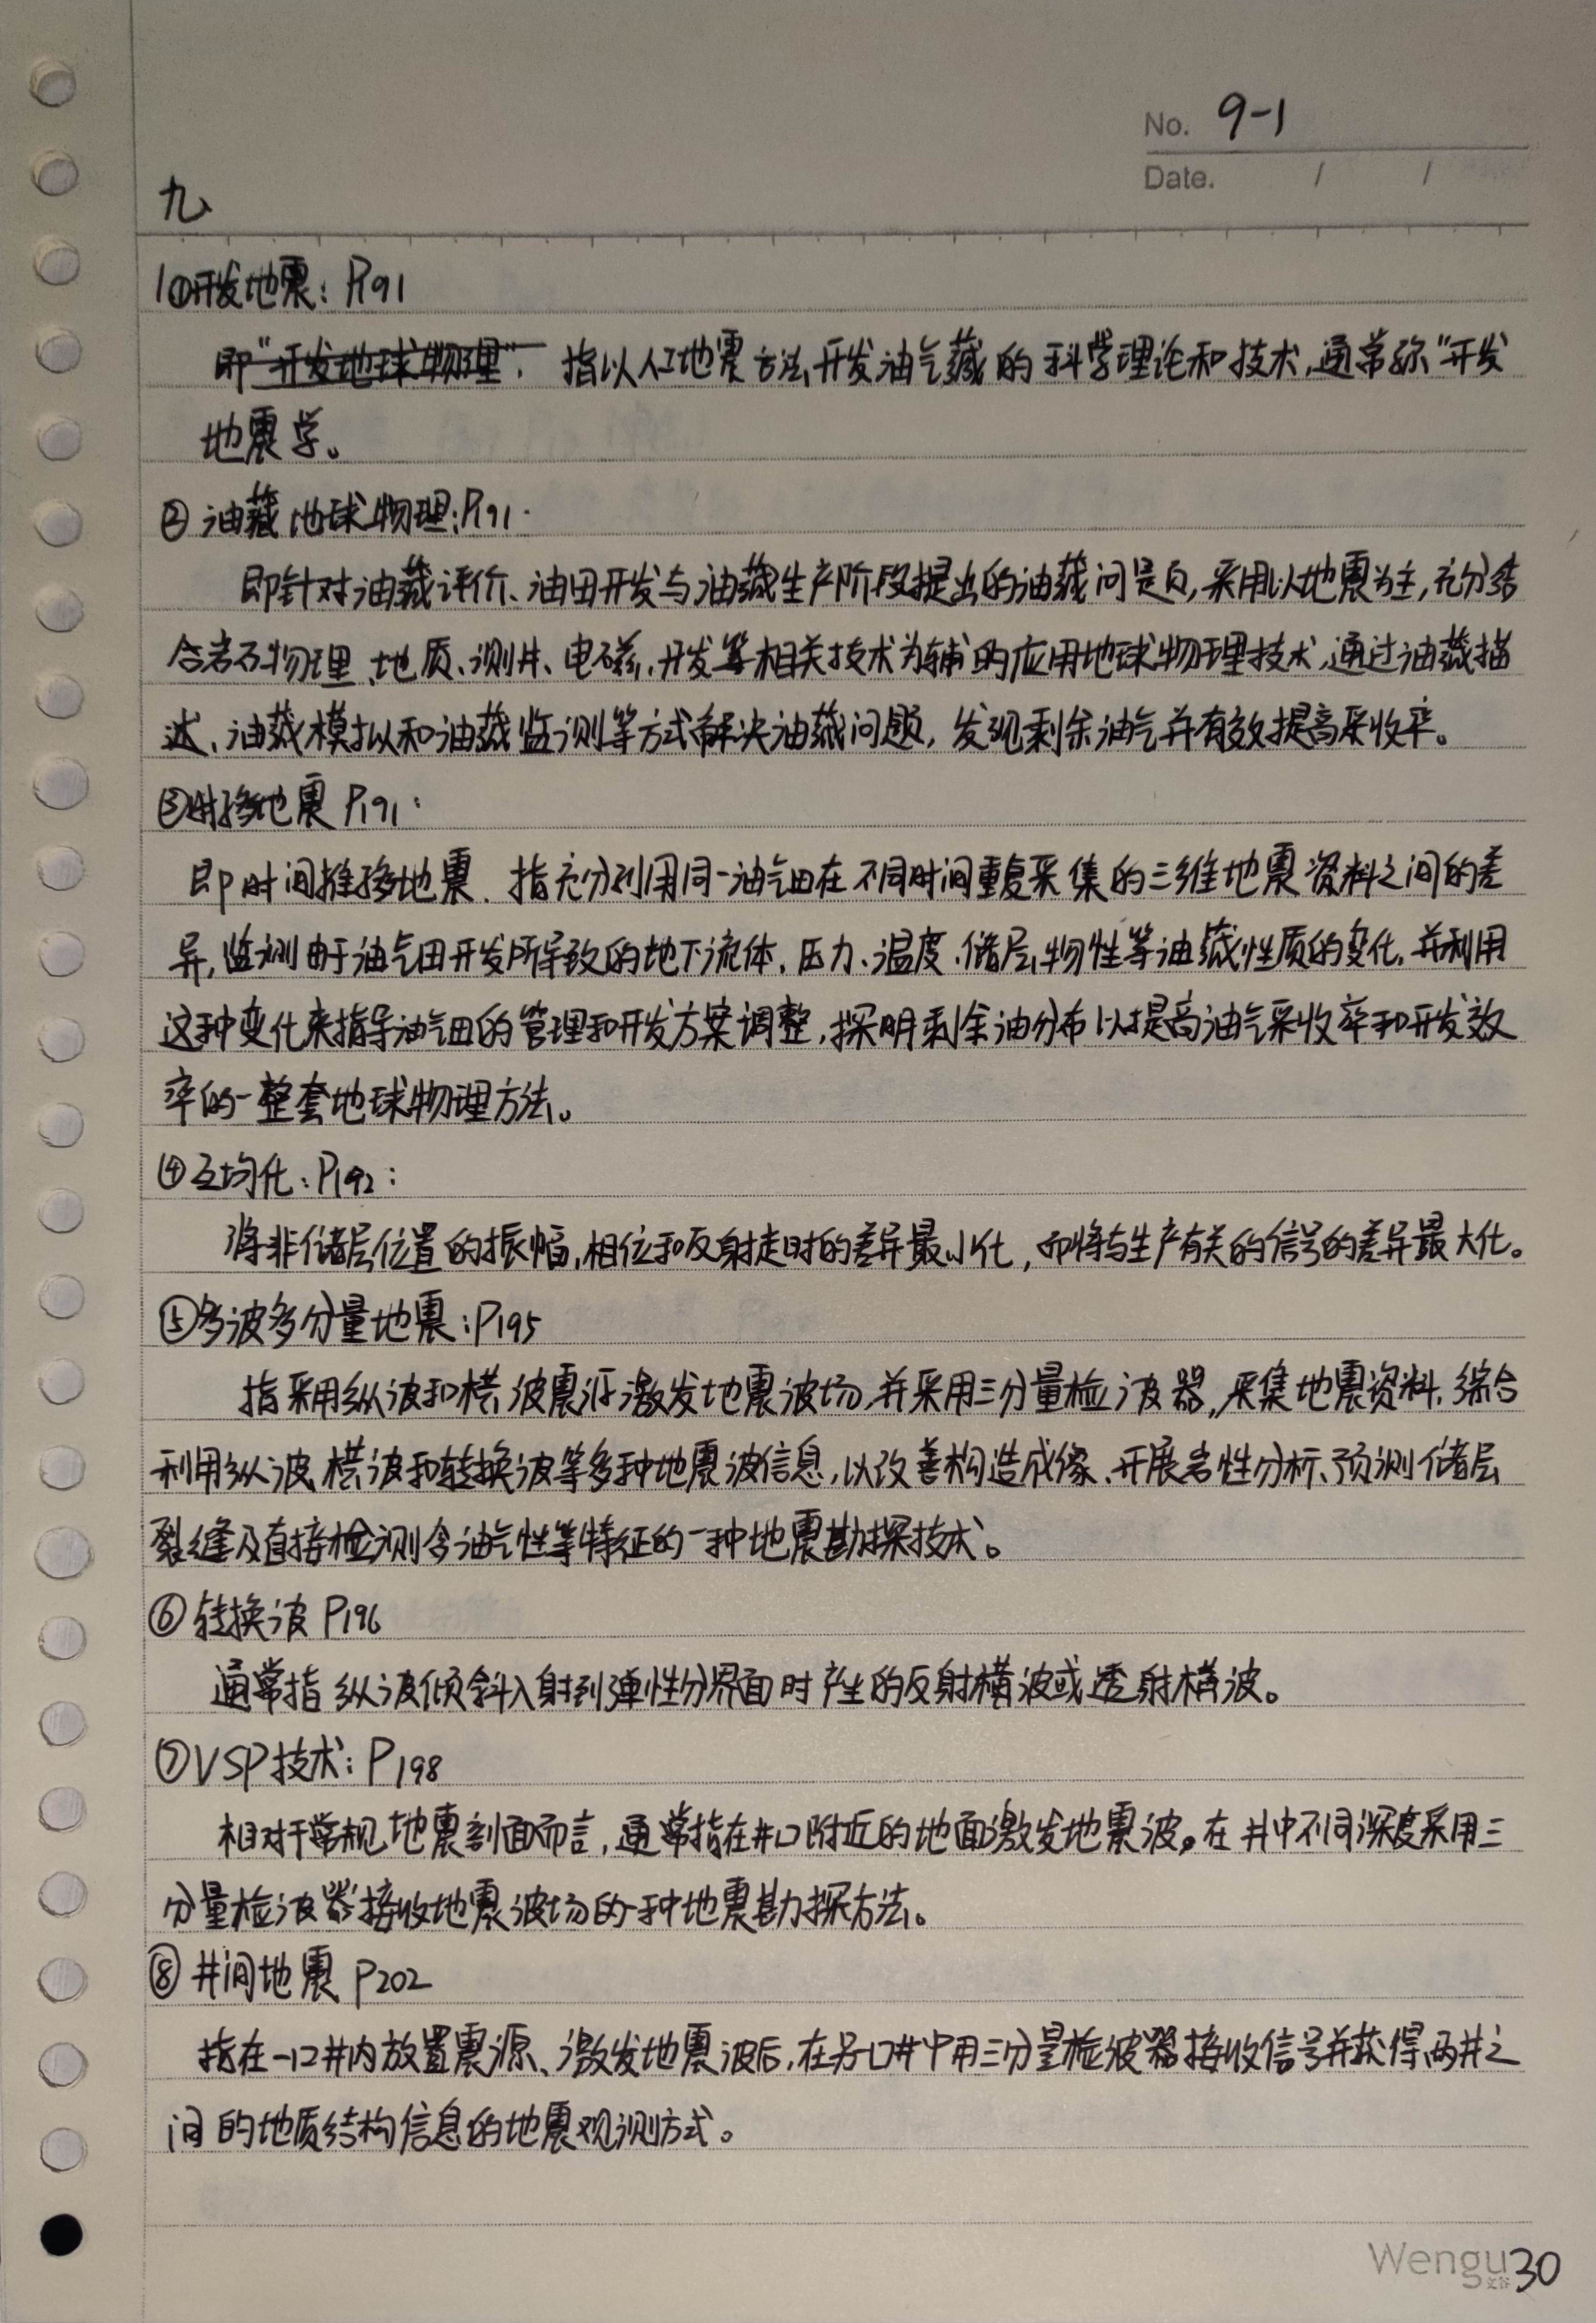 No. 9-1
Date. / /
九
1①开发地震:P191
即"开发地球物理". 指以人工地震方法,开发油气藏的科学理论和技术,通常称"开发
地震学。
② 油藏地球物理:P191.
即针对油藏评价、油田开发与油藏生产阶段提出的油藏问题,采用以地震为主,充分结
合岩石物理、地质、测井、电磁、开发等相关技术为辅的应用地球物理技术,通过油藏描
述、油藏模拟和油藏监测等方式解决油藏问题,发现剩余油气并有效提高采收率。
③时移地震 P191:
即时间推移地震. 指充分利用同一油气田在不同时间重复采集的三维地震资料之间的差
异,监测由于油气田开发所导致的地下流体、压力、温度、储层物性等油藏性质的变化,并利用
这种变化来指导油气田的管理和开发方案调整,探明剩余油分布以提高油气采收率和开发效
率的一整套地球物理方法。
④互均化:P192:
将非储层位置的振幅,相位和反射走时的差异最小化,而将与生产有关的信号的差异最大化。
⑤多波多分量地震:P195
指采用纵波和横波震源激发地震波场,并采用三分量检波器,采集地震资料,综合
利用纵波、横波和转换波等多种地震波信息,以改善构造成像、开展岩性分析、预测储层
裂缝及直接检测含油气性等特征的一种地震勘探技术。
⑥转换波 P196
通常指纵波倾斜入射到弹性分界面时产生的反射横波或透射横波。
⑦VSP技术:P198
相对于常规地震剖面而言,通常指在井口附近的地面激发地震波,在井中不同深度采用三
分量检波器接收地震波场的一种地震勘探方法。
⑧井间地震 P202
指在一口井内放置震源、激发地震波后,在另口井中用三分量检波器接收信号并获得两井之
间的地质结构信息的地震观测方式。
Wengu 文谷 30